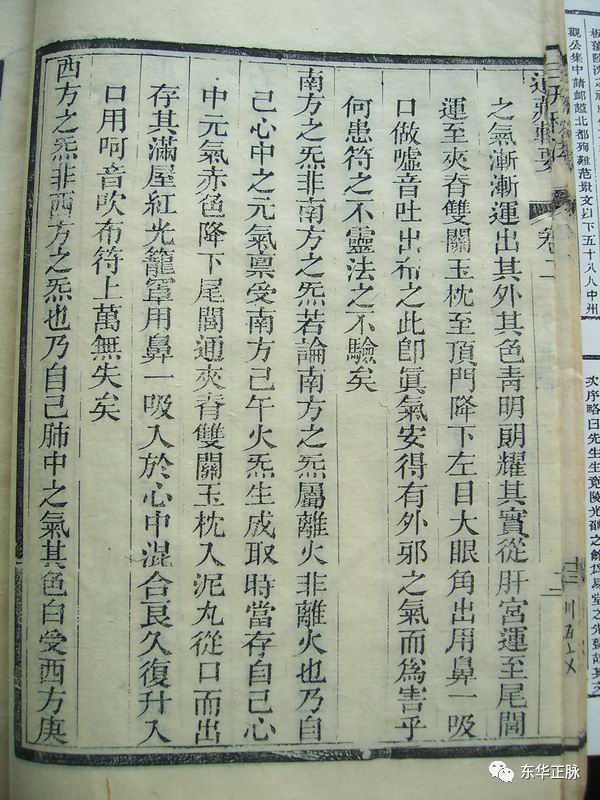 觀公集中請卹諡北都殉難范景文以下五十八人中州
次序略曰先生生竟陵光
道藏輯要
卷
之氣漸漸運出其外其色靑明朗耀其實從肝宮運至尾閭
運至夾脊雙關玉枕至頂門降下左目大眼角出用鼻一吸
口做噓音吐出布之此卽眞氣安得有外邪之氣而爲害乎
何患符之不靈法之不驗矣
南方之炁非南方之炁若論南方之炁屬離火非離火也乃自
己心中之元氣禀受南方己午火炁生成取時當存自己心
中元氣赤色降下尾閭通夾脊雙關玉枕入泥丸從口而出
存其滿屋紅光籠罩用鼻一吸入於心中混合良久復升入
口用呵音吹布符上萬無失矣
西方之炁非西方之炁也乃自己肺中之氣其色白受西方庚
东华正脉